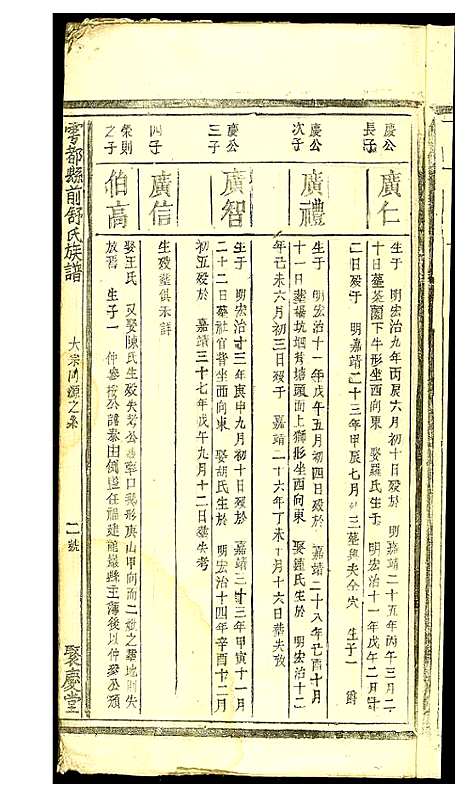 慶公
長子
廣仁
生于 明宏治九年丙辰六月初十日歿於 嘉靖二十五年丙午三月二
十日葬茶園下牛形坐西向東 娶羅氏生于 明宏治十一年戊午二月
二日歿于 明嘉靖二十三年甲辰七月 三葬與夫仝穴 生子一 爵
慶公
次子
廣禮
生于 明宏治十一年戊午五月初四日歿於 嘉靖二十八年己酉十月
十一日葬楊坑烟 塘頭面上獅形坐西向東 娶鍾氏生於 明宏治十二
年己未六月初三日歿于 嘉靖二十六年丁未 月十六日葬失攷
慶公
三子
廣智
生于 明宏治十三年庚申九月初十日歿於 嘉靖三十三年甲寅十一月
二十二日葬社官背坐西向東 娶胡氏生於 明宏治十四年辛酉十二月
初五歿於 嘉靖三十七年戊午九月十二日葬失考
四子
廣信
生歿葬俱未詳
榮則
之子
伯高
娶王氏 又娶陳氏生歿失考公 口 形庚山甲向而二 之葬地則失
放焉 生子一 仲 公諱泰由 任福建 縣主薄後以仲 公頹
雩都縣前舒氏族譜
大宗 源之系
二號
聚慶堂